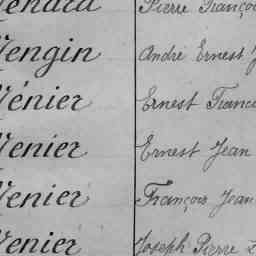 Venard Pierre François
Vengin André Ernest
Vénier Ernest Franço
Venier Ernest Jean
Venier François Jean
Venier Joseph Pierre